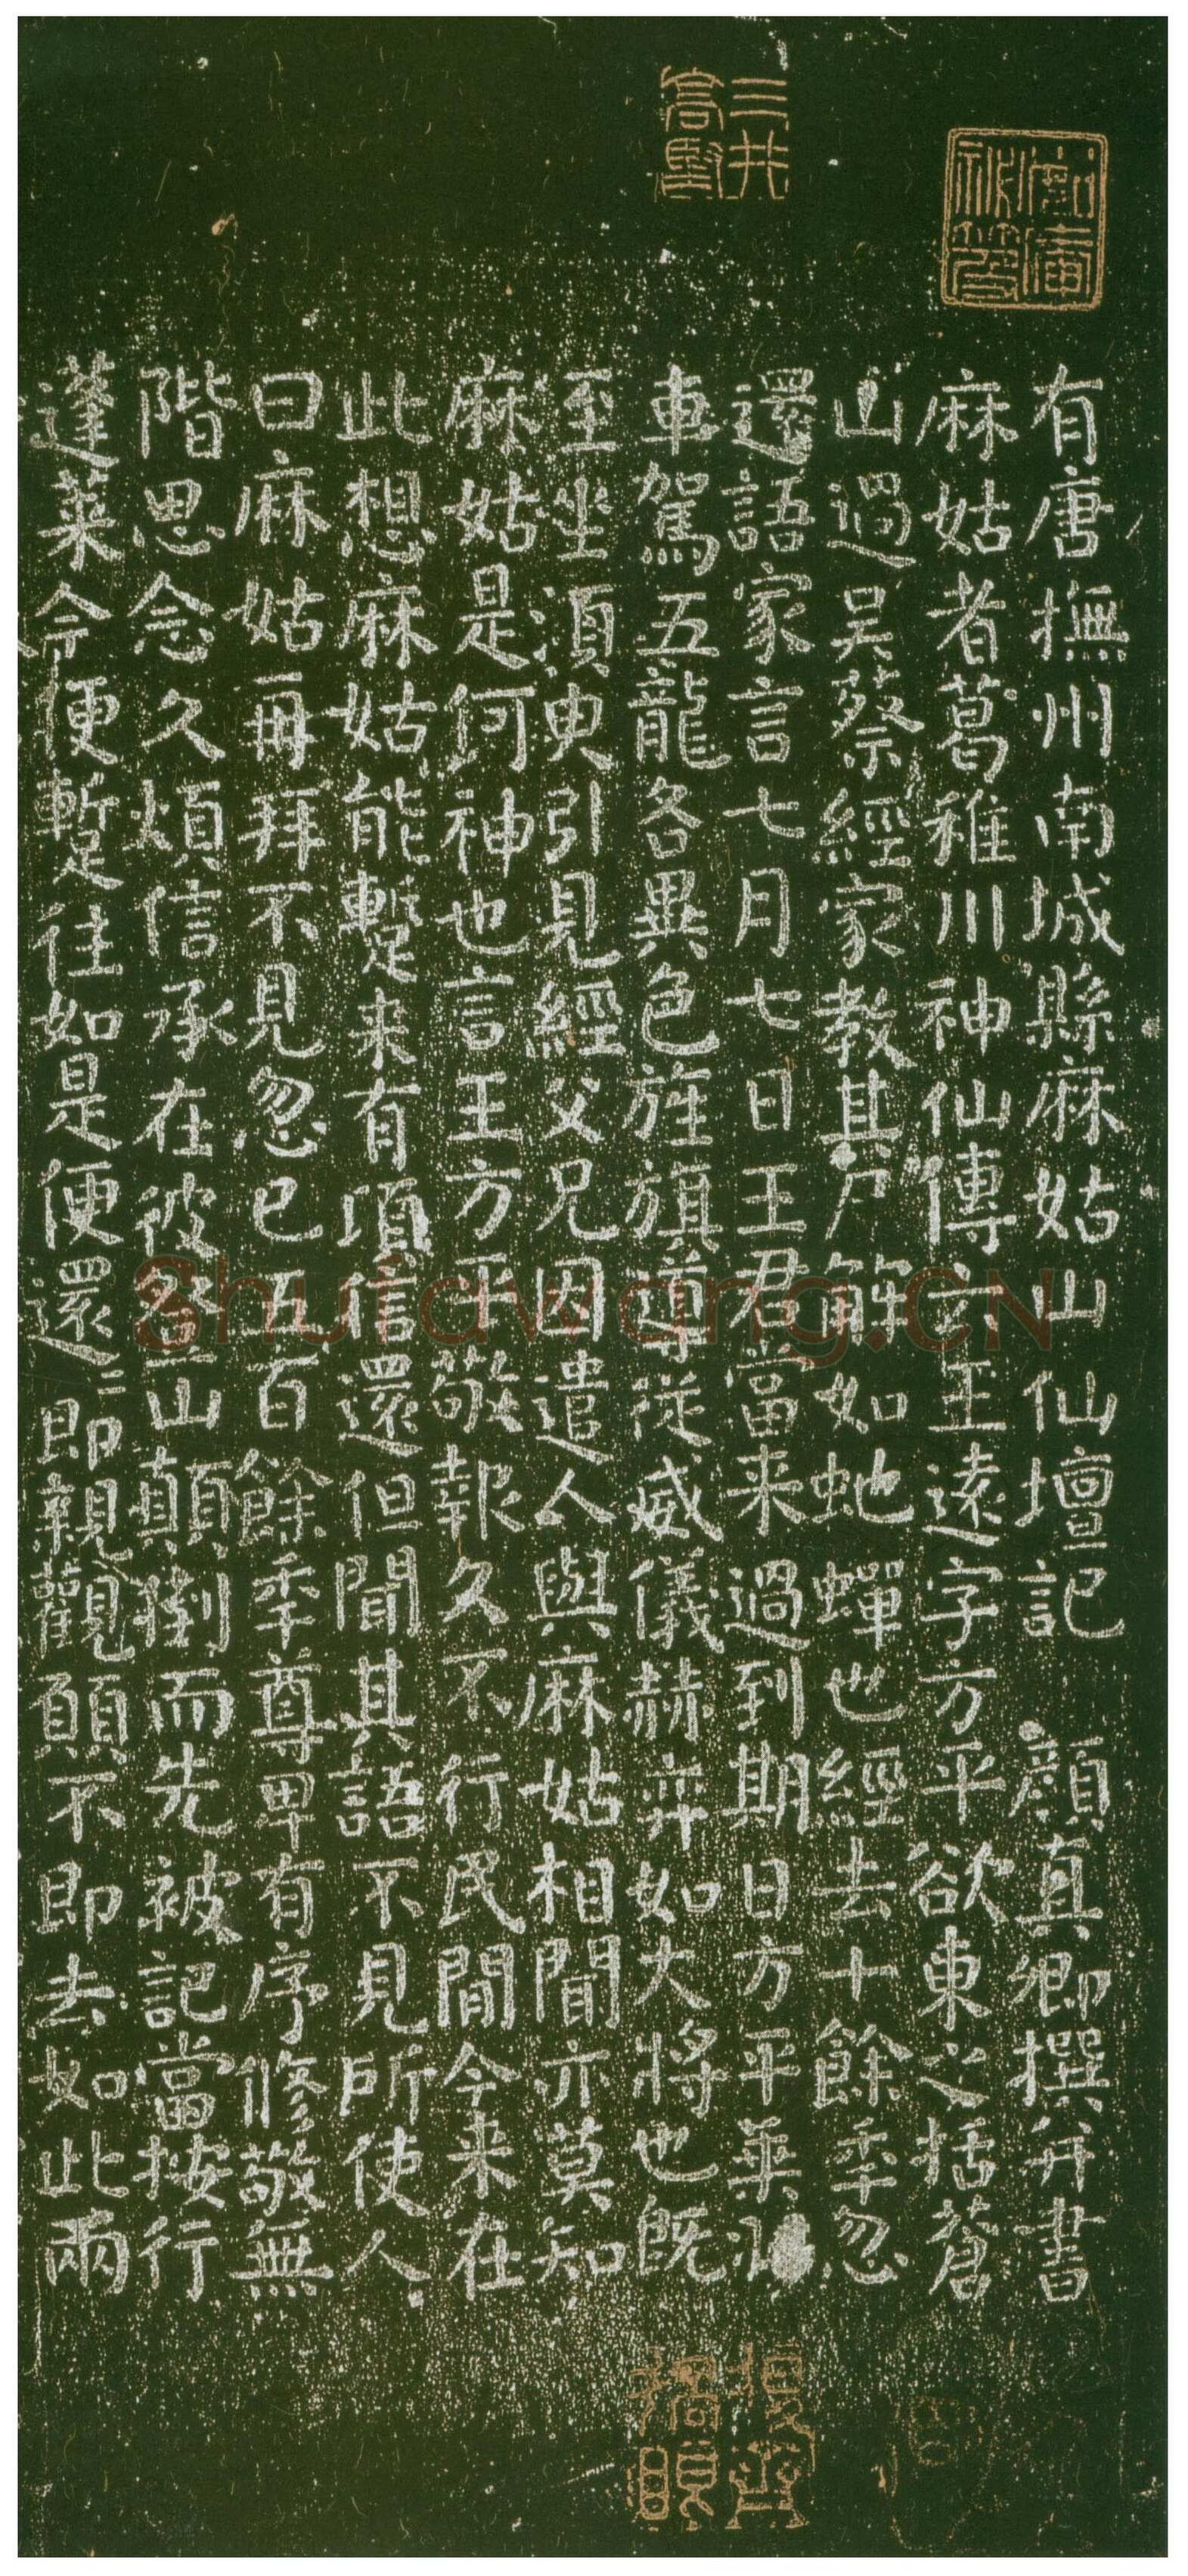 有唐撫州南城縣麻姑山仙壇記 顏真卿撰并書
麻姑者葛稚川神仙傳云王遠字方平欲東之括蒼
山過吴蔡經家教其尸解如虵蟬也經去十餘秊忽
還語家言七月七日王君當来過到期日方平乗
車駕五龍各異色旌旗導從威儀赫弈如大將也既
至坐湏臾引見經父兄因遣人與麻姑相聞亦莫知
麻姑是何神也言王方平敬報久不行民間今来在
此想麻姑能蹔来有頃信還但聞其語不見所使人
曰麻姑再拜不見忽已五百餘秊尊卑有序修敬無
階思念久煩信承在彼登山顛倒而先被記當按行
蓬萊今便蹔往如是便還還即親觀願不即去如此兩
三井
高堅
Shufawang.CN